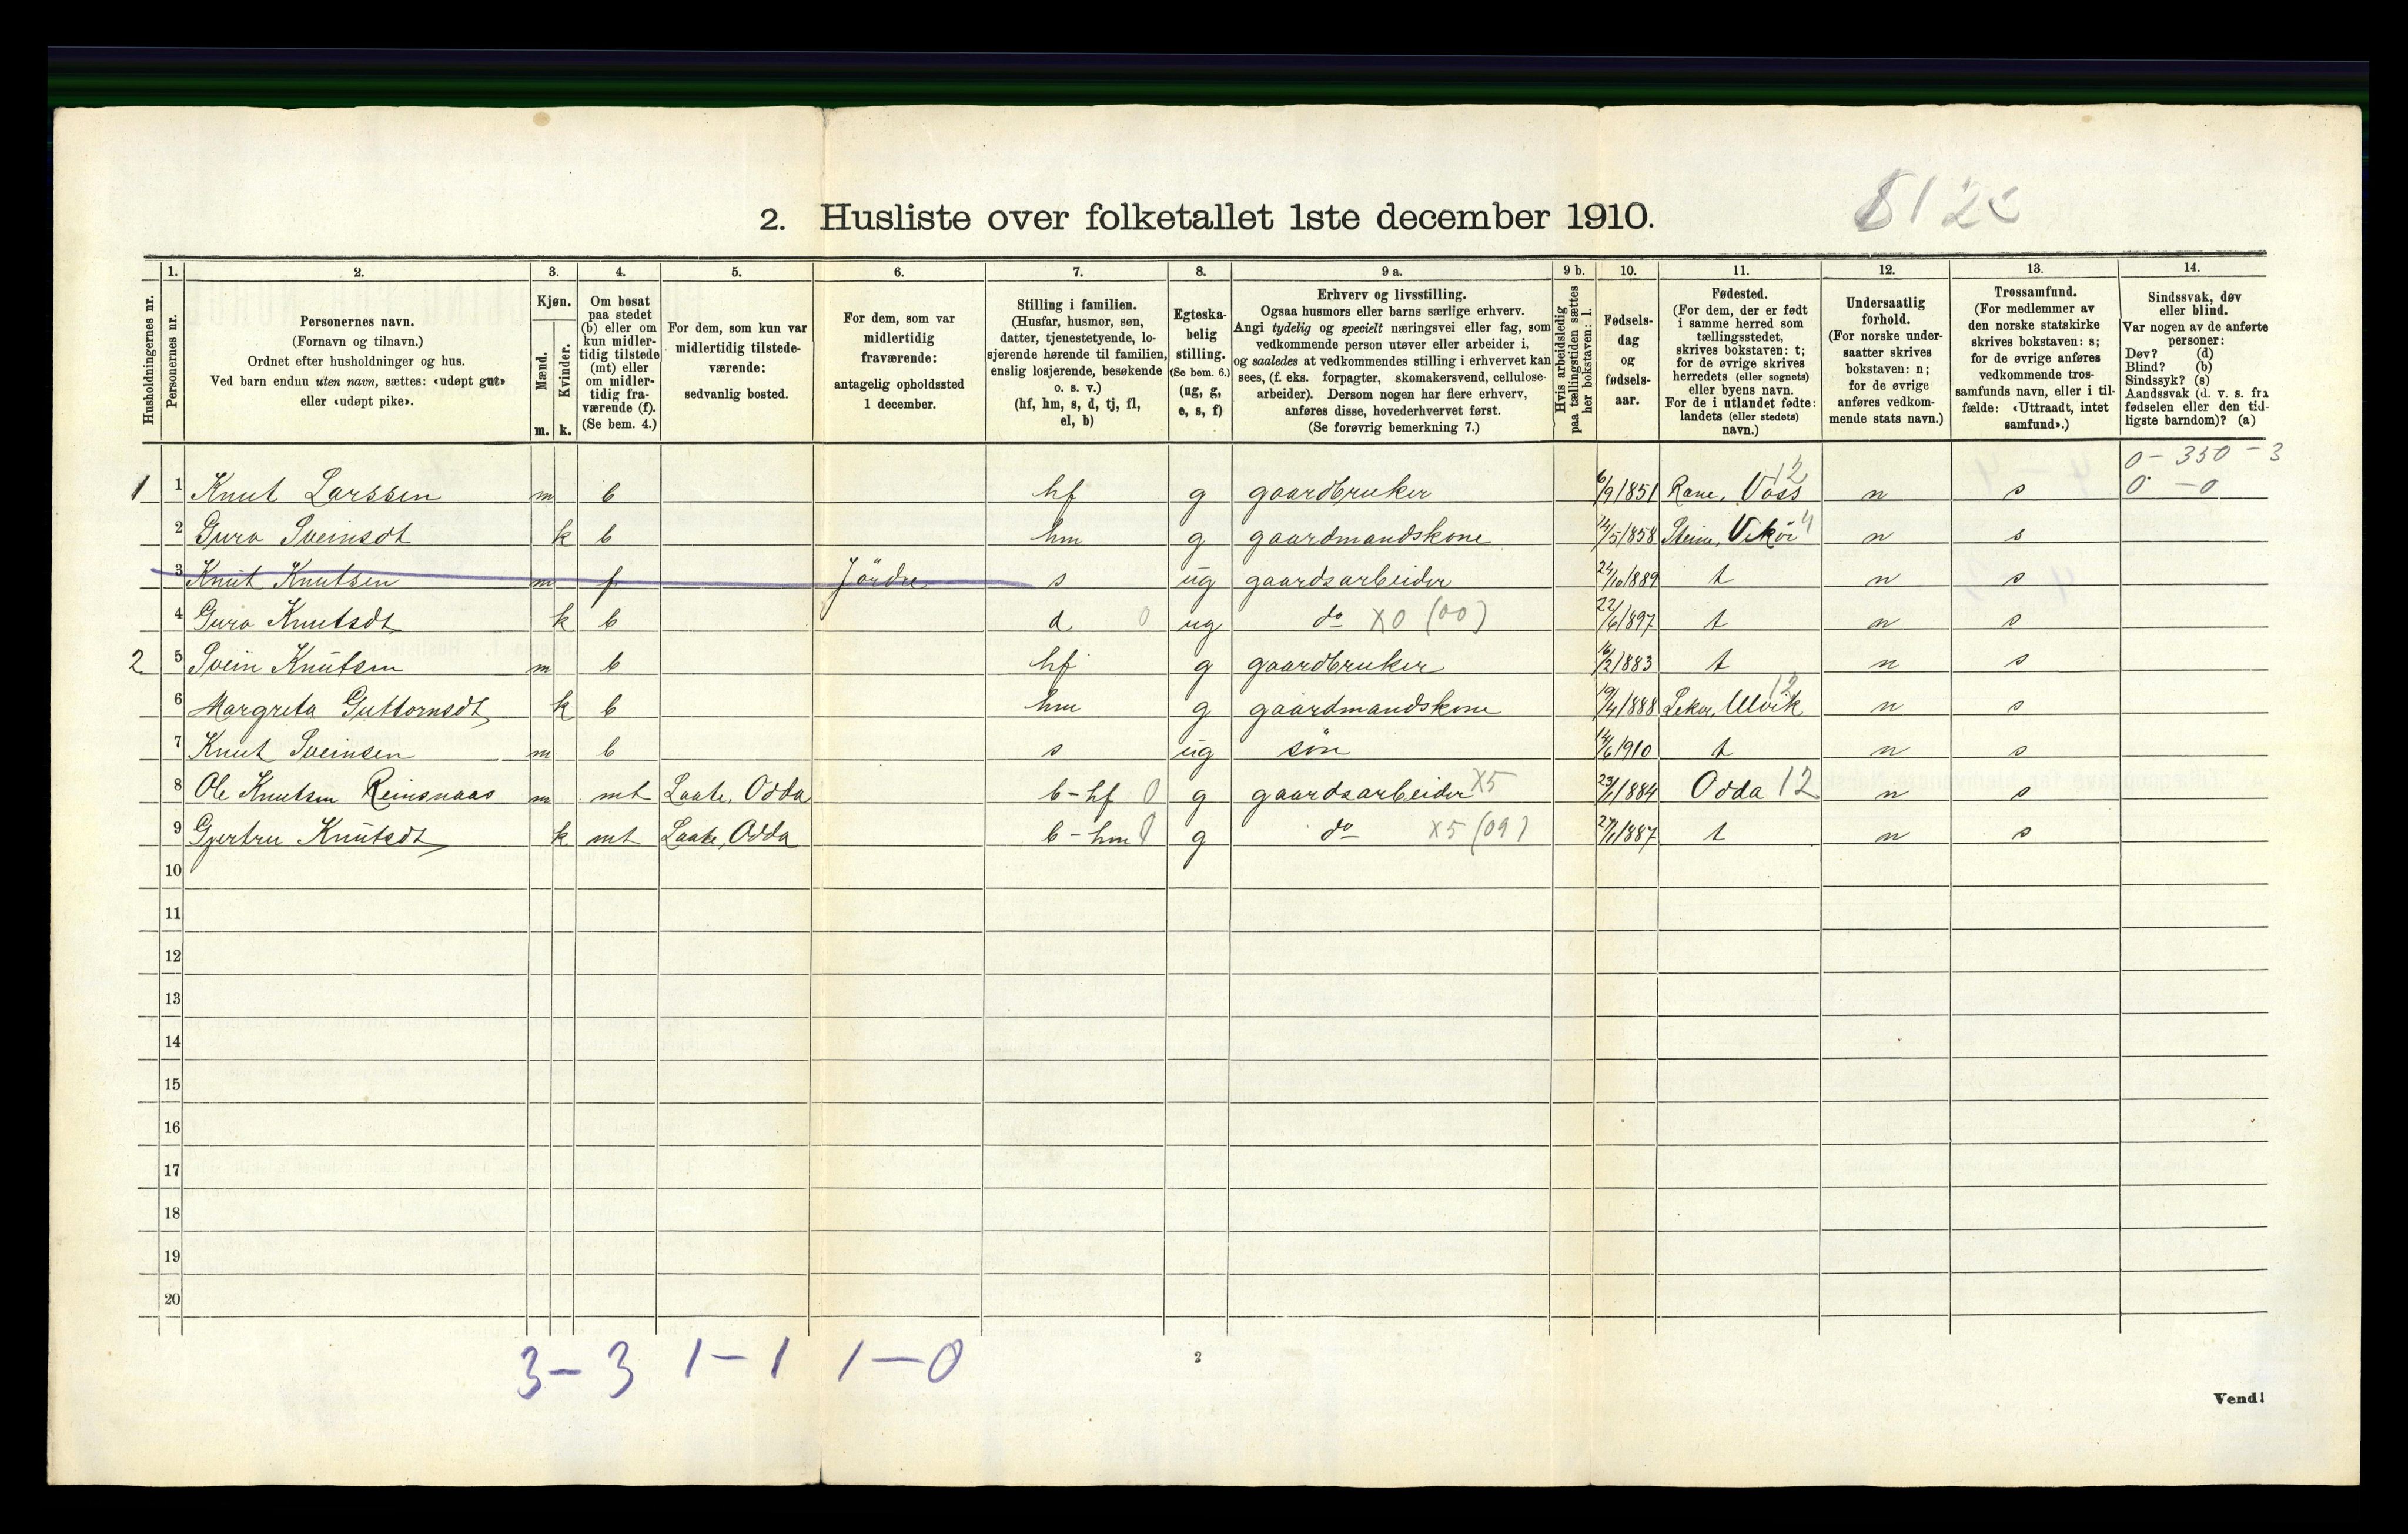 2. Husliste over folketallet 1ste december 1910.
1. 2. 3. 4. 5. 6. 7. 8. 9 a. 9 b. 10. 11. 12. 13. 14.
Husholdningernes nr.
Personernes nr.
Personernes navn.
(Fornavn og tilnavn.)
Ordnet efter husholdninger og hus.
Ved barn endnu uten navn, sættes: «udøpt gut»
eller «udøpt pike».
Kjøn.
Mænd.
Kvinder.
m. k.
Om bosat
paa stedet
(b) eller om
kun midler-
tidig tilstede
(mt) eller
om midler-
tidig fra-
værende (f).
(Se bem. 4.)
For dem, som kun var
midlertidig tilstede-
værende:
sedvanlig bosted.
For dem, som var
midlertidig
fraværende:
antagelig opholdssted
1 december.
Stilling i familien.
(Husfar, husmor, søn,
datter, tjenestetyende, lo-
sjerende hørende til familien,
enslig losjerende, besøkende
o. s. v.)
(hf, hm, s, d, tj, fl,
el, b)
Egteska-
belig
stilling.
(Se bem. 6.)
(ug, g,
e, s, f)
Erhverv og livsstilling.
Ogsaa husmors eller barns særlige erhverv.
Angi tydelig og specielt næringsvei eller fag, som
vedkommende person utøver eller arbeider i,
og saaledes at vedkommendes stilling i erhvervet kan
sees, (f. eks. forpagter, skomakersvend, cellulose-
arbeider). Dersom nogen har flere erhverv,
anføres disse, hovederhvervet først.
(Se forøvrig bemerkning 7.)
Hvis arbeidsledig
paa tællingstiden sættes
her bokstaven: l.
Fødsels-
dag
og
fødsels-
aar.
Fødested.
(For dem, der er født
i samme herred som
tællingsstedet,
skrives bokstaven: t;
for de øvrige skrives
herredets (eller sognets)
eller byens navn.
For de i utlandet fødte:
landets (eller stedets)
navn.)
Undersaatlig
forhold.
(For norske under-
saatter skrives
bokstaven: n;
for de øvrige
anføres vedkom-
mende stats navn.)
Trossamfund.
(For medlemmer av
den norske statskirke
skrives bokstaven: s;
for de øvrige anføres
vedkommende tros-
samfunds navn, eller i til-
fælde: «Uttraadt, intet
samfund».)
Sindssvak, døv
eller blind.
Var nogen av de anførte
personer:
Døv? (d)
Blind? (b)
Sindssyk? (s)
Aandssvak (d. v. s. fra
fødselen eller den tid-
ligste barndom)? (a)
0 - 350 - 3
1 1 Knut Larssen m b hf g gaardbruker 6/9 1851 Rane, Voss 12 n s 0 - 0
2 Guro Sveinsdt k b hm g gaardmandskone 14/5 1858 Steine, Vikör 4 n s
3 Knut Knutsen m f Jördre s ug gaardsarbeider 24/10 1889 t n s
4 Guro Knutsdt k b d 0 ug do X0 (00) 22/6 1897 t n s
2 5 Svein Knutsen m b hf g gaardbruker 16/2 1883 t n s
6 Margreta Guttormsdt k b hm g gaardmandskone 19/4 1888 Lekve, Ulvik 12 n s
7 Knut Sveinsen m b s ug sön 14/6 1910 t n s
8 Ole Knutsen Reinsnaas m mt Laate, Odda b - hf 0 g gaardsarbeider X5 23/1 1884 Odda 12 n s
9 Gjertru Knutsdt k mt Laate, Odda b - hm 0 g do X5 (09) 27/1 1887 t n s
10
11
12
13
14
15
16
17
18
19
20
3 - 3 1 - 1 1 - 0
2
Vend!